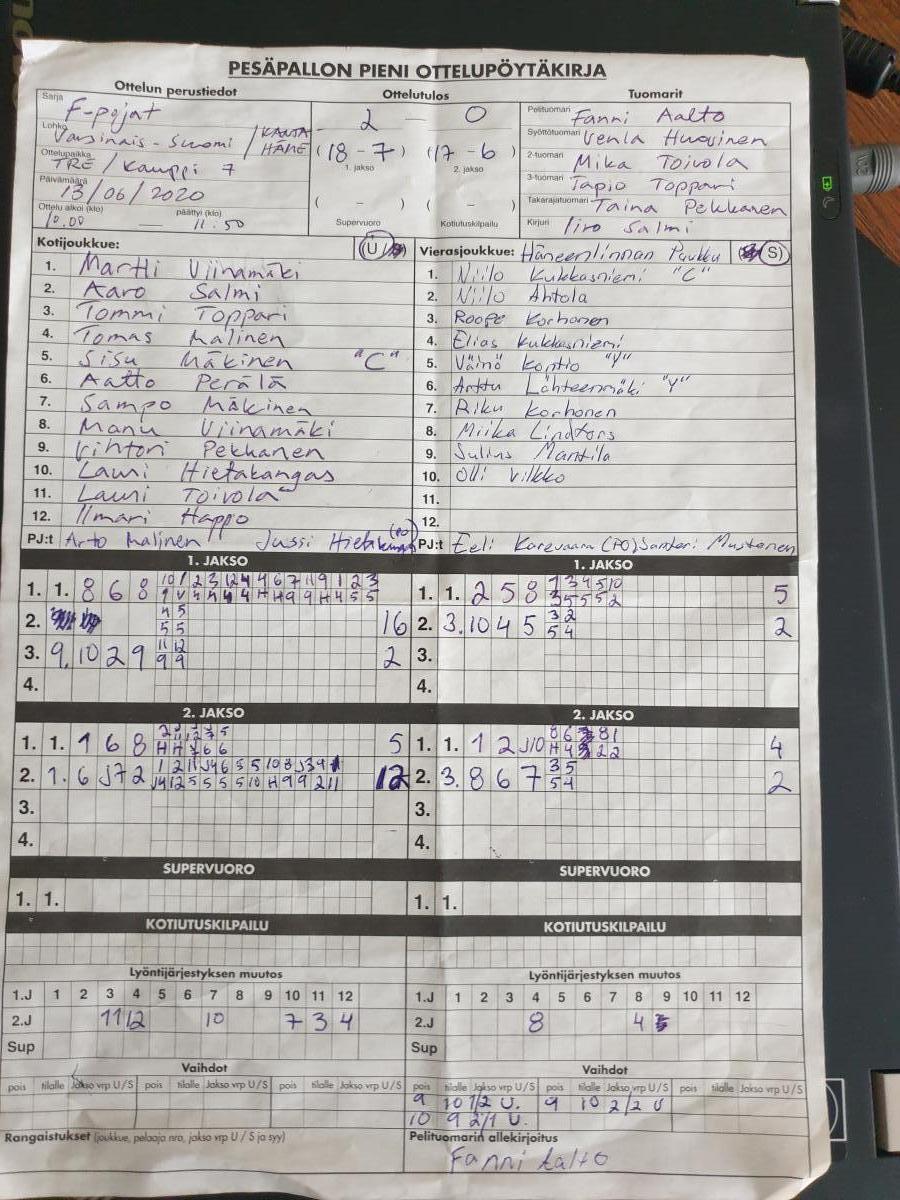 PESÄPALLON PIENI OTTELUPÖYTÄKIRJA
Ottelun perustiedot Ottelutulos Tuomarit
Sarja F-pojat
Lohko Varsinais-Suomi / KANTA HÄME
Ottelupaikka TRE / Kauppi 7
Päivämäärä 13/06/2020
Ottelu alkoi (klo) 10.00 — päättyi (klo) 11.50
2 — 0
(18 - 7) (17 - 6)
1. jakso 2. jakso
( - ) ( - )
Supervuoro Kotiutuskilpailu
Pelituomari Fanni Aalto
Syöttötuomari Venla Huovinen
2-tuomari Mika Toivola
3-tuomari Tapio Toppari
Takarajatuomari Taina Pekkanen
Kirjuri Iiro Salmi
Kotijoukkue: (U/
1. Martti Viinamäki
2. Aaro Salmi
3. Tommi Toppari
4. Tomas Malinen
5. Sisu Mäkinen "C"
6. Aatto Perälä
7. Sampo Mäkinen
8. Manu Viinamäki
9. Vihtori Pekkanen
10. Lauri Hietakangas
11. Lauri Toivola
12. Ilmari Happo
PJ:t Arto Malinen Jussi (PO)
Vierasjoukkue: Hämeenlinnan Puukku S)
1. Niilo Kukkasniemi "C"
2. Niilo Ahtola
3. Roope Korhonen
4. Elias Kukkasniemi
5. Väinö Kontio "Y"
6. Arttu Lähteenmäki "Y"
7. Riku Korhonen
8. Miika Lindfors
9. Julius Mantila
10. Olli Vilkko
11.
12.
PJ:t Eeli Karevaara (PO) Santeri Mustonen
1. JAKSO
1. 1. 8 6 8
2. 16
3. 9. 10 2 9 11 12 2
9 9
4.
2. JAKSO
1. 1. 1 6 8 5
2. 1. 6 J7 2 12
3.
4.
SUPERVUORO
1. 1.
KOTIUTUSKILPAILU
Lyöntijärjestyksen muutos
1.J 1 2 3 4 5 6 7 8 9 10 11 12
2.J 11 12 10 7 3 4
Sup
Vaihdot
pois tilalle Jakso vrp U/S pois tilalle Jakso vrp U/S pois tilalle Jakso vrp U/S
Rangaistukset (joukkue, pelaaja nro, jakso vrp U / S ja syy)
1. JAKSO
1. 1. 2 5 8 5
2. 3. 10 4 5 3 2 2
5 4
3.
4.
2. JAKSO
1. 1. 1 2 J10 4
2. 3. 8 6 7 3 5 2
5 4
3.
4.
SUPERVUORO
1. 1.
KOTIUTUSKILPAILU
Lyöntijärjestyksen muutos
1.J 1 2 3 4 5 6 7 8 9 10 11 12
2.J 8 4
Sup
Vaihdot
pois tilalle Jakso vrp U/S pois tilalle Jakso vrp U/S pois tilalle Jakso vrp U/S
9 10 1/2 U. 9 10 2/2 U
10 9 2/1 U.
Pelituomarin allekirjoitus
Fanni Aalto